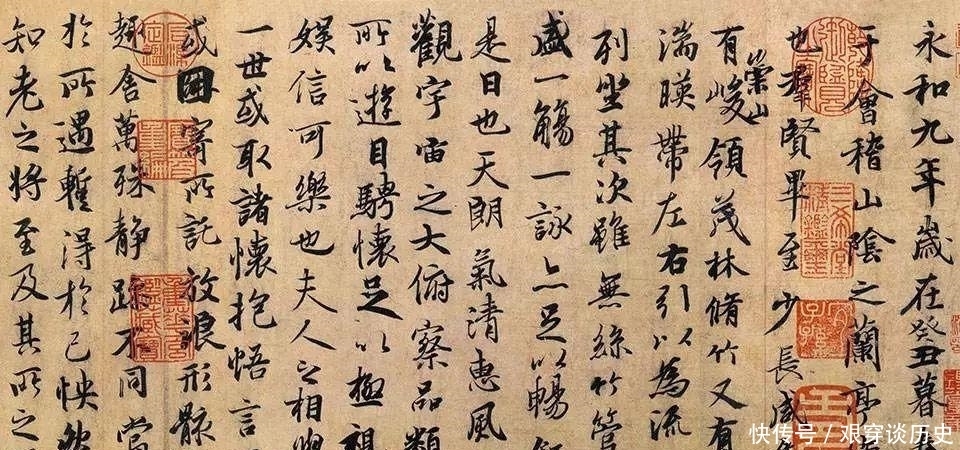 永和九年歲在癸丑暮
于會稽山陰之蘭亭
也羣賢畢至少長咸
崇山
有峻領茂林脩竹又有
湍暎帶左右引以為流
列坐其次雖無絲竹管
盛一觴一詠亦足以暢
是日也天朗氣清惠風
觀宇宙之大俯察品類
所以遊目騁懷足以極視
娛信可樂也夫人之相與
一世或取諸懷抱悟言
或因寄所託放浪形骸
趣舍萬殊靜躁不同當
於所遇蹔得於己怏然
知老之將至及其所之
快传号／艰穿谈历史